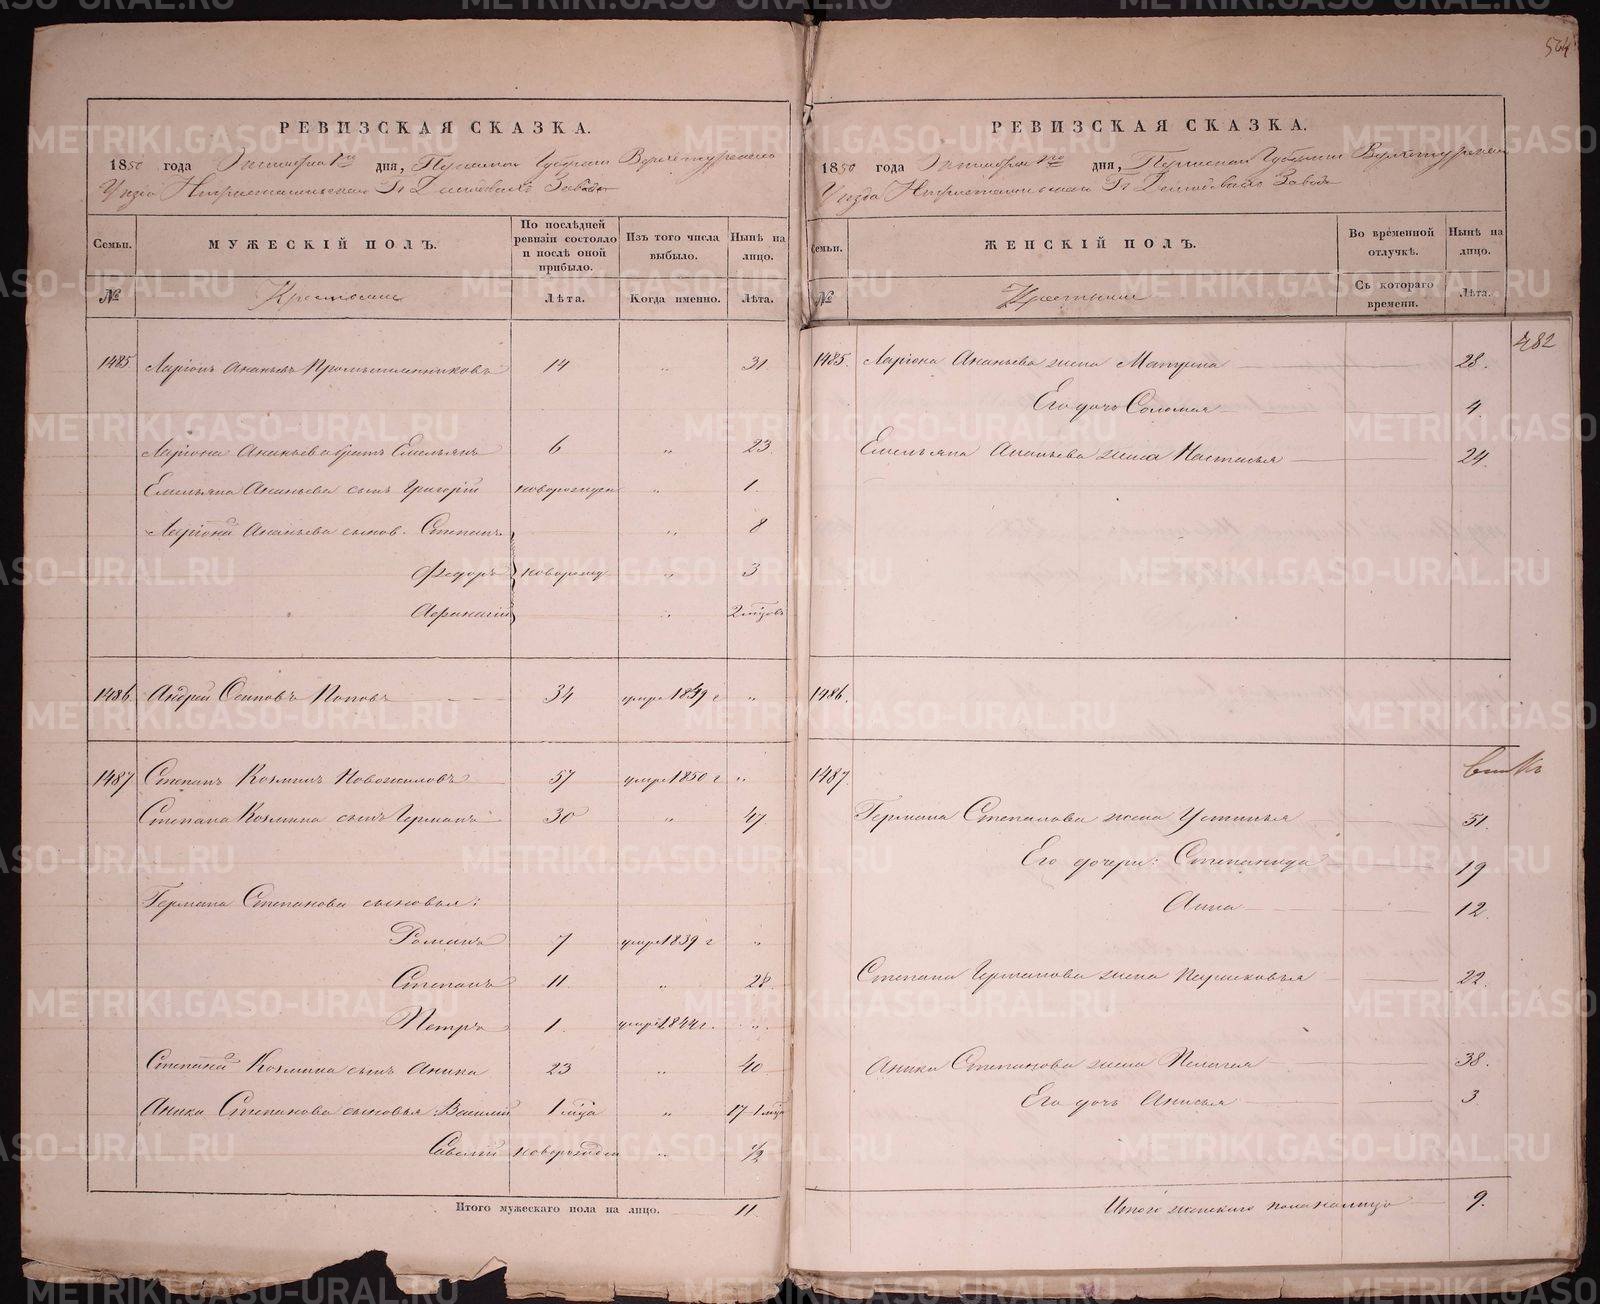 РЕВИЗСКАЯ СКАЗКА.
1850 года Октября 1го дня, Пермской Губернии Верхотурскаго
Уѣзда Нижнетагильскаго Гг Демидовыхъ Завода
Семьи. МУЖЕСКІЙ ПОЛЪ. По послѣдней ревизіи состояло и послѣ оной прибыло. Изъ того числа выбыло. Нынѣ на лицо.
№ Крестьяне Лѣта. Когда именно. Лѣта.
1485 Ларіонъ Ананьевъ Промышленниковъ 14 " 31
Ларіона Ананьева братъ Емельянъ 6 " 23
Емельяна Ананьева сынъ Григорій новорожден " 1
Ларіона Ананьева сынов. Степанъ " 8
Федоръ новорожд " 3
Афанасій " 2 мѣсяцовъ
1486. Андрей Осиповъ Поповъ 34 умре 1849 г "
1487 Степанъ Козминъ Новожиловъ 57 умре 1850 г "
Степана Козмина сынъ Германъ 30 " 47
Германа Степанова сыновья:
Романъ 7 умре 1839 г "
Степанъ 11 " 28
Петръ 1. умре 1844 г. "
Степана Козмина сынъ Аника 23 " 40
Аника Степанова сыновья: Василій 1 мѣсяца " 17-1 мѣсяц
Савелій новорожден " 1/2
Итого мужескаго пола на лицо. 11.
564
РЕВИЗСКАЯ СКАЗКА.
1850 года Октября 1го дня, Пермской Губерніи Верхотурскаго
Уѣзда Нижнетагильскаго Гг Демидовыхъ Завода
Семьи. ЖЕНСКІЙ ПОЛЪ. Во врѣменной отлучкѣ. Нынѣ на лицо.
№ Крестьяне Съ котораго времени. Лѣта.
482
1485. Ларіона Ананьева жена Матрена 28.
Его дочь Соломея 4.
Емельяна Ананьева жена Настасья 24.
1486.
1487.
Германа Степанова жена Устинья 51.
Его дочери: Степанида 19
Анна 12.
Степана Германова жена Парасковья 22.
Аники Степанова жена Пелагея 38.
Его дочь Анисья 3
Итого женскаго пола налицо 9.
METRIKI.GASO-URAL.RU